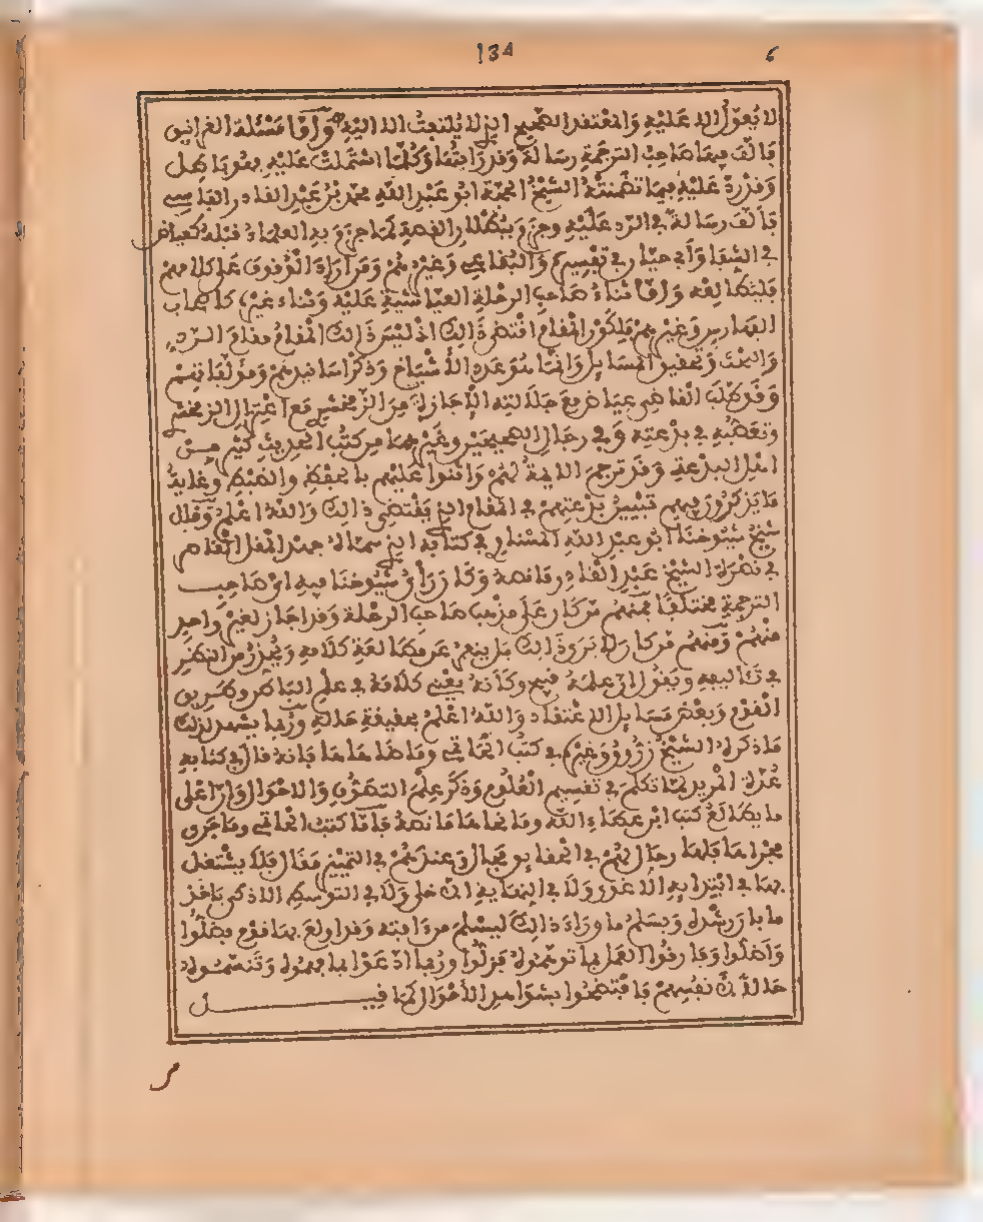 134 6
لا يعول إلا عليه والمعتقد الصحيح الذي لا يلتفت إلا إليه وأما مسئلة الغرانيق
فألف فيها صاحب الترجمة رسالة وقرر إثباتها وكلما اشتملت عليه فهو باطل
وقد رد عليه فيما تضمنته الشيخ الحجة أبو عبد الله محمد بن عبد القادر الفاسي
فألف رسالة في الرد عليه وجزم ببطلان القصة كما جزم به العلماء قبله كعياض
في الشفا وأبي حيان في تفسيره والبقاعي وغيرهم ومن أراد الوقوف على كلامهم
فليطالعه وأما ثناء صاحب الرحلة العياشية عليه وثناء غيره كأصحاب
الفهارس وغيرهم فلكون المقام اقتضى ذالك إذ ليس ذالك المقام مقام الرد
والبحث وتحقيق المسايل وإنما هو عد الأشياخ وذكر أسانيدهم ومؤلفاتهم
وقد طلب القاضي عياض مع جلالته الإجازة من الزمخشري مع اعتزال الزمخشري
وتعصبه في بدعته وفي رجال الصحيحين وغيرهما من كتب الحديث كثير من
أهل البدعة وقد ترجم الايمة لهم وأثنوا عليهم بالحفظ والضبط وغاية
ما يذكرون فيهم تبيين بدعتهم في المقام الذي يقتضي ذالك والله أعلم وقال
شيخ شيوخنا أبو عبد الله المسناوي في كتابه الذي سماه جهد المقل القاصر
في نصرة الشيخ عبد القادر ما نصه وكان رأي شيوخنا فيه أي صاحب
الترجمة مختلفا فمنهم من كان على مذهب صاحب الرحلة وقد أجاز لغير واحد
منهم ومنهم من كان لا يرى ذالك بل ينهى عن مطالعة كلامه ويحذر من النظر
في تئاليفه ويقول إن علمه فيه وكأنه يعني كلامه في علم الباطن وطريق
القوم وبعض مسايل الاعتقاد والله أعلم بحقيقة حاله وربما يشهد لذلك
ما ذكره الشيخ زروق وغيره في كتب الحاتمي وما ضاهاها فإنه قال في كتابه
عدة المريد لما تكلم في تقسيم العلوم وذكر علم التصوف والاحوال وإن أعلى
ما يطالع كتب ابن عطاء الله وما نحاها ما نصه فأما كتب الحاتمي وما جرى
مجراها فلها رجال لهم في الحقايق مجال وعندهم في التمييز مقال فلا يشتغل
بها في ابتدايه إلا مغرور ولا في انتهايه إلا خلي ولا في التوسط إلا ذكي يأخذ
ما بان رشده ويسلم ما وراء ذالك ليسلم من ءافته وقد أولع بها قوم فضلوا
وأضلوا وفارقوا العمل بما توهموه فزلوا وربما ادعوا ما فهموه وتنسموه
حالا لأنفسهم فافتضحوا بشواهد الأحوال كما قيل